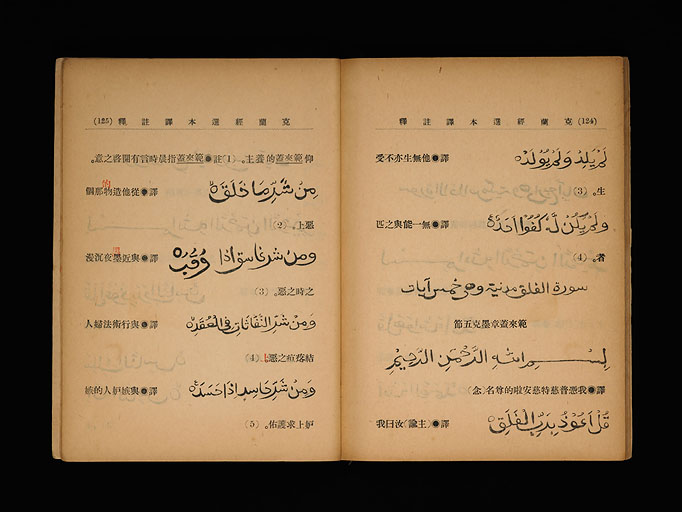 (124) 克蘭經選本譯註釋
لَمْ يَلِدْ وَلَمْ يُولَدْ 譯●他無生亦不受
生。(3)
وَلَمْ يَكُنْ لَهُ كُفُوًا اَحَدٌ 譯●無一能與之匹
者。(4)
سورة الفلق مدنية وهي خمس آيات
範來蓋章墨克五節
بِسْمِ اللهِ الرَّحْمٰنِ الرَّحِيْمِ
譯●我憑普慈特慈安啦的尊名(念)
قُلْ اَعُوْذُ بِرَبِّ الْفَلَقِ 譯●(主諭)汝曰我
克蘭經選本譯註釋 (125)
仰範來蓋的養主。(1)註●範來蓋指晨時言有開啓之意。
مِنْ شَرِّ مَا خَلَقَ 譯●從他造物那個
惡上。(2)
وَمِنْ شَرِّ غَاسِقٍ اِذَا وَقَبَ 譯●與近墨夜沉浸
之時之惡。(3)
وَمِنْ شَرِّ النَّفَّاثَاتِ فِي الْعُقَدِ 譯●與行術法婦人
結 之惡上(4)
وَمِنْ شَرِّ حَاسِدٍ اِذَا حَسَدَ 譯●與嫉妒人的嫉
妒上求護佑。(5)